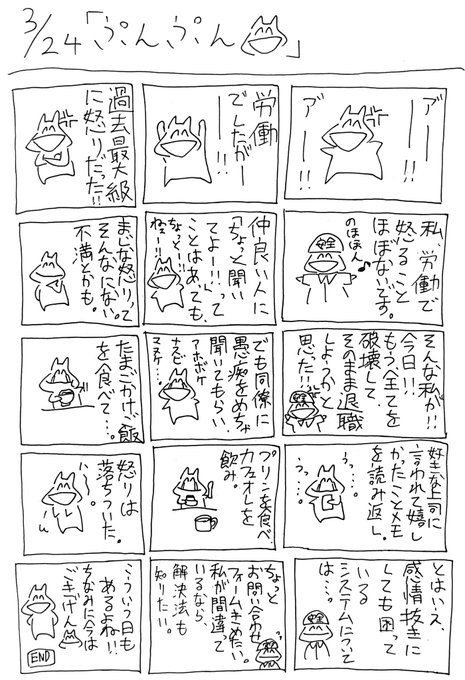 3/24「ぷんぷん」
アーーー!!
アーーー!!
労働
でしたがー
ーーー!!
過去最大級
に怒りだった!!
私、労働で
怒ること
ほぼないです。
のほほん♪
安全
仲良い人に
「ちょっと聞い
てよー!!」って
ことはあっても、
ちょっと
ねぇー!!
まじな怒りって
そんなにない。
不満とかも。
そんな私が!!
今日!!
もう全てを
破壊して
そのまま退職
しようかと
思った!!
でも同僚に
愚痴をめちゃ
聞いてもらい、
アーホボケ
たまごかけご飯
を食べて…。
好きな上司に
言われて嬉し
かったことメモ
を読み返し。
うっ…。
うっ…。
プリンを食べ、
カフェオレを
飲み。
怒りは
落ちついた。
とはいえ、
感情抜きに
しても困って
いる
システムについて
は…。
ちょっと
お問い合わせ
フォームきめたい。
私が間違って
いるなら、
解決法も
知りたい。
こういう日も
あるよね!!
ちなみに今は
ごきげん
END